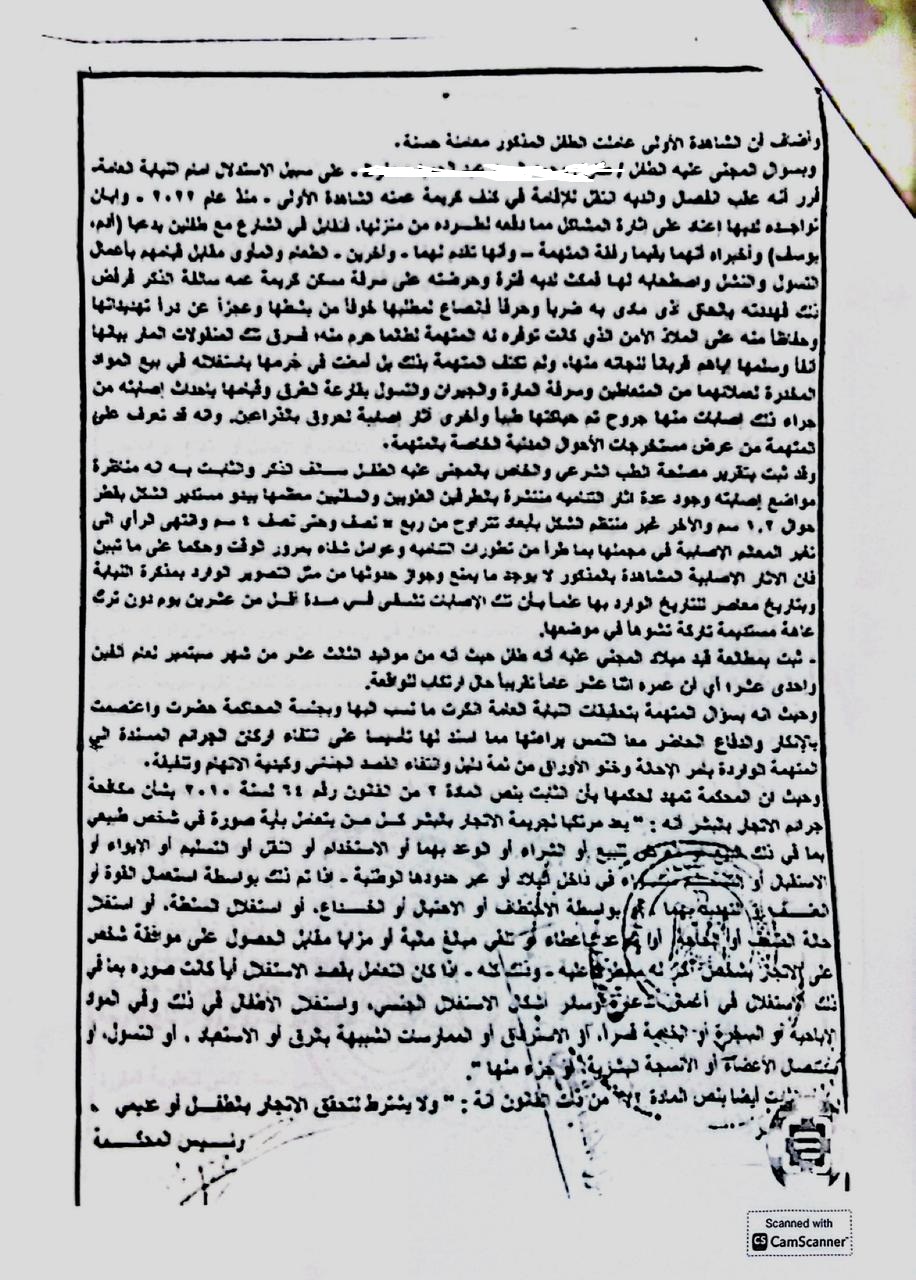 وأضاف أن الشاهدة الأولى عاملت الطفل المذكور معاملة حسنة.
وبسؤال المجني عليه الطفل - على سبيل الاستدلال امام النيابة العامة.
قرر أنه عقب انفصال والديه انتقل للإقامة في كنف كريمة عمته الشاهدة الأولى - منذ عام ٢٠٢٢ - وإبان
تواجده لديها إعتاد على اثارة المشاكل مما دفعه لطرده من منزلها، فتقابل في الشارع مع طفلين يدعيا (أدم،
يوسف) وأخبراه أنهما يقيما رفقة المتهمة – وأنها تقدم لهما - وأخرين - الطعام والمأوى مقابل قيامهم بأعمال
التسول والنشل واصطحابه لها فمكث لديه فترة وحرضته على سرقة مسكن كريمة عمه سالفة الذكر فرفض
ذلك فهددته بإلحاق أذى مادى به ضرباً وحرقاً فإنصاع لمطلبها خوفاً من بطشها وعجزاً عن درأ تهديداتها
وحفاظاً منه على الملاذ الأمن الذي كانت توفره له المتهمة لطالما حرم منه؛ فسرق تلك المنقولات المار بيانها
أنفاً وسلمها إياهم قرباناً لنجاته منها، ولم تكتف المتهمة بذلك بل أمعنت في جرمها باستغلاله في بيع المواد
المخدرة لعملائهما من المتعاطين وسرقة المارة والجيران والتسول بقارعة الطرق وقيامها بإحداث إصابته من
جراء ذلك إصابات منها جروح تم حياكتها طبياً وأخرى آثار إصابية لحروق بالذراعين. وانه قد تعرف على
المتهمة من عرض مستخرجات الأحوال المدنية الخاصة بالمتهمة.
وقد ثبت بتقرير مصلحة الطب الشرعي والخاص بالمجنى عليه الطفل سالف الذكر والثابت به انه مناظرة
مواضع إصابته وجود عدة اثار التئامية منتشرة بالطرفين العلويين والساقين معظمها يبدو مستدير الشكل بقطر
حوال ١.٢ سم والآخر غير منتظم الشكل بأبعاد تتراوح من ربع * نصف وحتى نصف ٤ سم وانتهى الرأي الى
تغير المعالم الإصابية في مجملها بما طرأ من تطورات التئامية وعوامل شفاء بمرور الوقت وحكما على ما تبين
فان الاثار الإصابية المشاهدة بالمذكور لا يوجد ما يمنع وجواز حدوثها من مثل التصوير الوارد بمذكرة النيابة
وبتاريخ معاصر للتاريخ الوارد بها علماً بأن تلك الإصابات تشفى في مدة أقل من عشرين يوم دون ترك
عاهة مستديمة تاركة تشوها في موضعها.
- ثبت بمطالعة قيد ميلاد المجني عليه أنه طفل حيث أنه من مواليد الثالث عشر من شهر سبتمبر لعام ألفين
واحدى عشر؛ أي ان عمره اثنا عشر عاماً تقريباً حال ارتكاب الواقعة.
وحيث انه بسؤال المتهمة بتحقيقات النيابة العامة انكرت ما نسب اليها وبجلسة المحكمة حضرت واعتصمت
بالإنكار والدفاع الحاضر معا التمس براءتها مما اسند لها تأسيسا على انتفاء اركان الجرائم المسندة الي
المتهمة الواردة بأمر الإحالة وخلو الأوراق من ثمة دليل وانتفاء القصد الجنائي وكيدية الاتهام وتلفيقه.
وحيث ان المحكمة تمهد لحكمها بأن الثابت بنص المادة ٢ من القانون رقم ٦٤ لسنة ٢٠١٠ بشأن مكافحة
جرائم الاتجار بالبشر أنه : " يعد مرتكبا لجريمة الاتجار بالبشر كل من يتعامل بأية صورة في شخص طبيعي
بما في ذلك البيع أو العرض للبيع أو الشراء أو الوعد بهما أو الاستخدام أو النقل أو التسليم أو الإيواء أو
الاستقبال أو التسلم سواء في داخل البلاد أو عبر حدودها الوطنية - اذا تم ذلك بواسطة استعمال القوة أو
العنف أو التهديد بهما ، أو بواسطة الاختطاف أو الاحتيال أو الخداع، أو استغلال السلطة، أو استغلال
حالة الضعف أو الحاجة أو الوعد بإعطاء أو تلقي مبالغ مالية أو مزايا مقابل الحصول على موافقة شخص
على الاتجار بشخص آخر له سيطرة عليه - وذلك كله - اذا كان التعامل بقصد الاستغلال أياً كانت صوره بما في
ذلك الاستغلال في أعمال الدعارة وسائر اشكال الاستغلال الجنسي، واستغلال الأطفال في ذلك وفي المواد
الإباحية أو السخرة أو الخدمة قسرا، أو الاسترقاق أو الممارسات الشبيهة بالرق أو الاستعباد ، أو التسول، و
استئصال الأعضاء أو الأنسجة البشرية؛ أو جزء منها ".
أيضا بنص المادة من ذات القانون انه : " ولا يشترط لتحقق الاتجار بالطفل أو عديمي
رئيس المحكمة
Scanned with
CS CamScanner